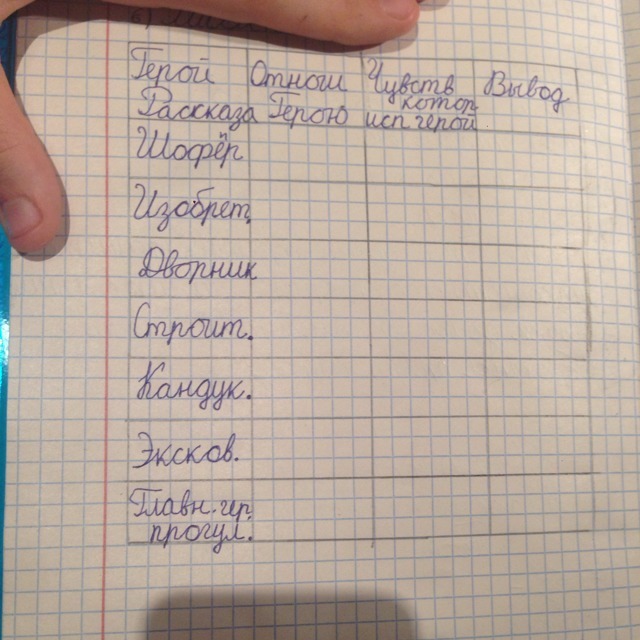 Герой Отнош Чувств Вывод
котор
Рассказа Герою исп герой
Шофёр
Изобрет.
Дворник
Строит.
Кандук.
Эксков.
Главн. гер.
прогул.